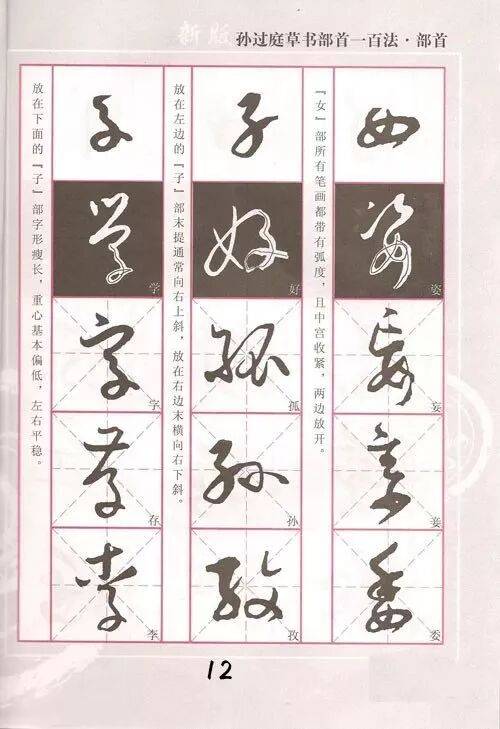 新版 孙过庭草书部首一百法·部首
『女』部所有笔画都带有弧度，且中宫收紧，两边放开。
女
姿
妄
妾
委
放在左边的『子』部末提通常向右上斜，放在右边末横向右下斜。
子
好
孤
孙
孜
放在下面的『子』部字形瘦长，重心基本偏低，左右平稳。
子
学
字
存
李
12